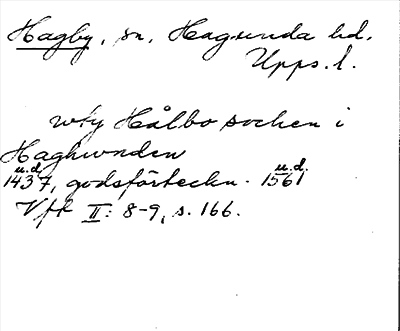 Hagby, sn, Hagunda hd,
Upps. l.
wty Hålbo sochen i
Haghwnden
u.d.
1437, godsförteckn. 1561 u.d.
Vfk II: 8-9, s. 166.